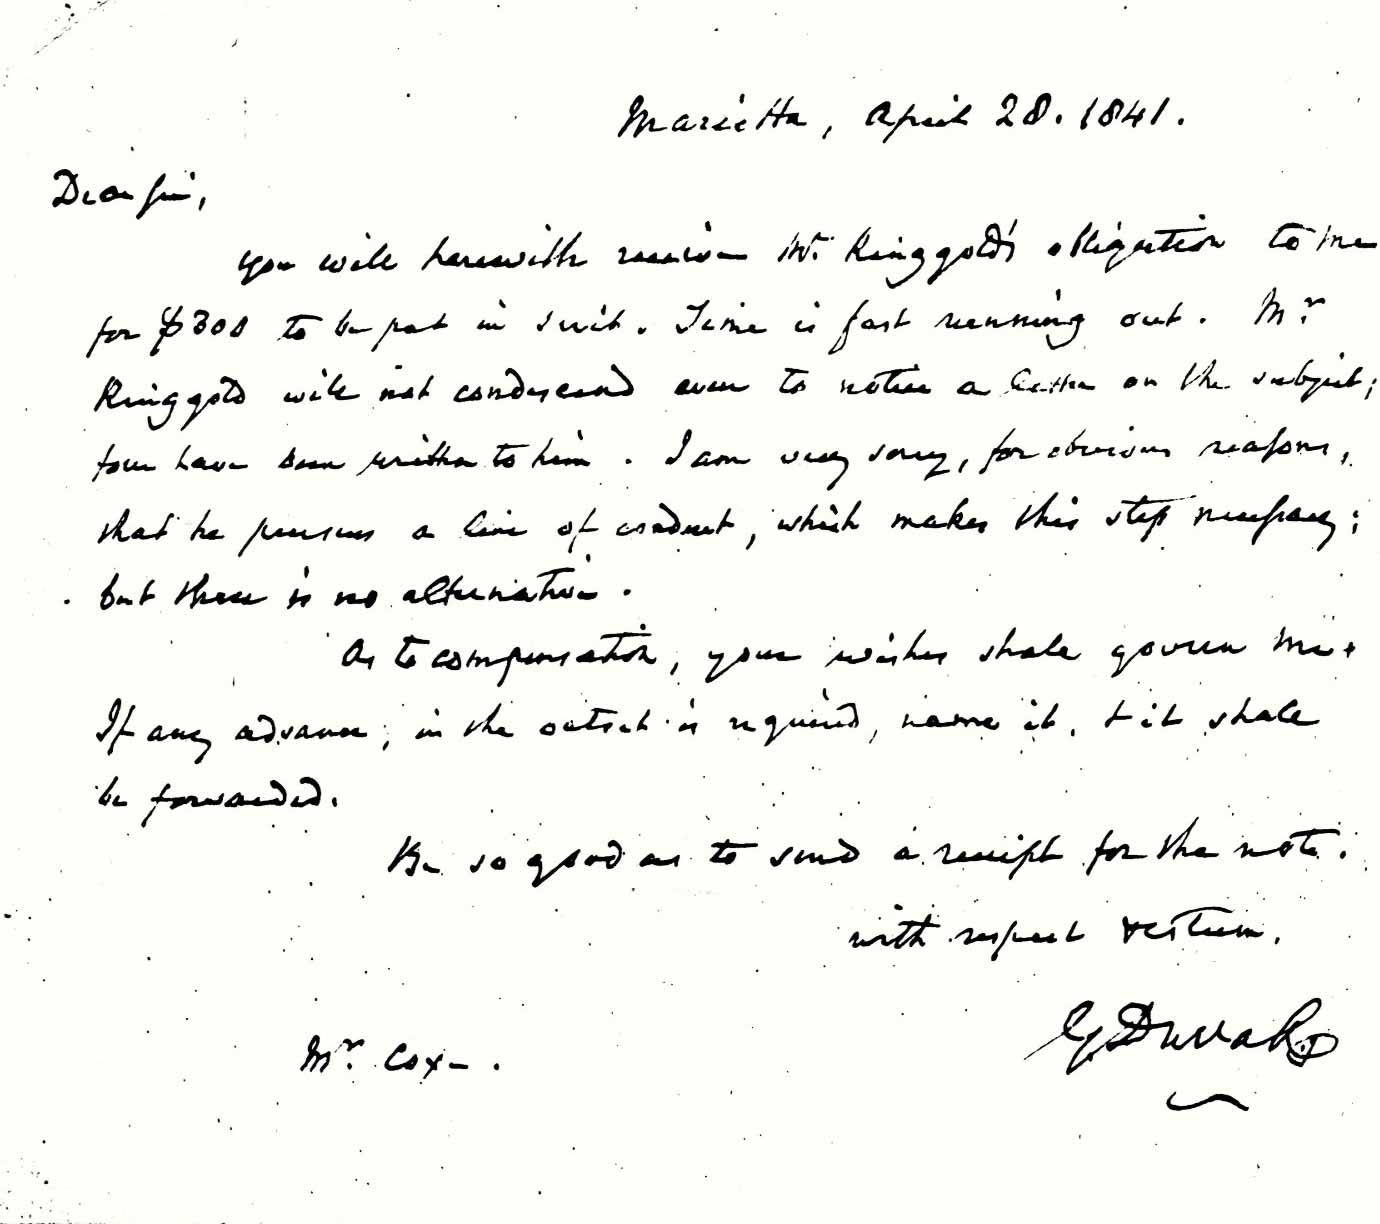 Marietta, April 28. 1841.
Dear Sir,
You will herewith receive Mr. Ringgold's obligation to me
for $300 to be put in suit. Time is fast running out. Mr.
Ringgold will not condescend even to notice a letter on the subject;
four have been written to him. I am very sorry, for obvious reasons,
that he pursues a line of conduct, which makes this step necessary;
but there is no alternative.
As to compensation, your wishes shall govern me.
If any advance, in the outset is required, name it, & it shall
be forwarded.
Be so good as to send a receipt for the note.
with respect & esteem.
Mr. Coxe.